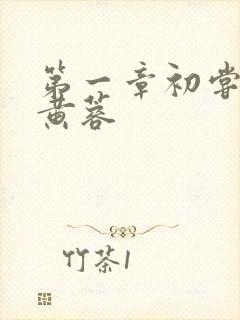 第一章初尝
黄蓉
竹茶1